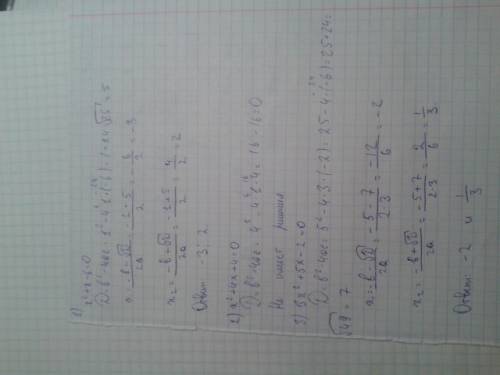 1) x²+x-6=0
D=b²-4ac=1²-4·1·(-6)=1+24 √25=5
x₁=(-b-√D)/2a=(-1-5)/2=-6/2=-3
x₂=(-b+√D)/2a=(-1+5)/2=4/2=2
Ответ: -3; 2
2) x²+4x+4=0
D=b²-4ac=4²-4·1·4=16-16=0
Не имеет решения
3) 3x²+5x-2=0
D=b²-4ac=5²-4·3·(-2)=25-4·(-6)=25+24=
√49=7
x₁=(-b-√D)/2a=(-5-7)/2·3=-12/6=-2
x₂=(-b+√D)/2a=(-5+7)/2·3=2/6=1/3
Ответ: -2 и 1/3